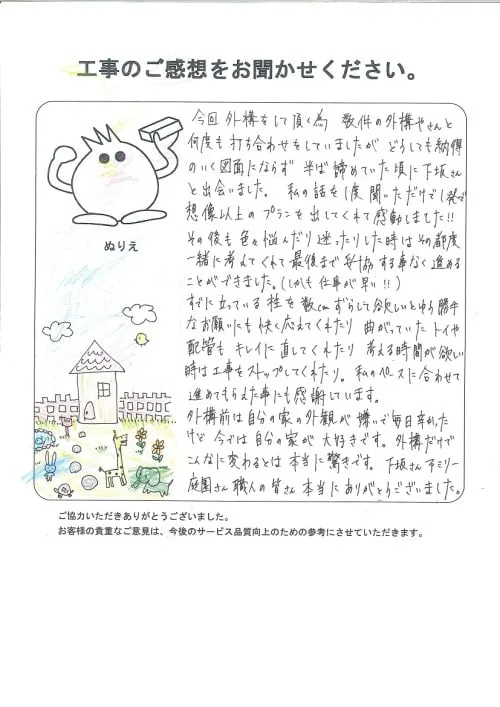 工事のご感想をお聞かせください。
今回 外構をして頂く為 数件の外構やさんと
何度も打ち合わせをしていましたが どうしても納得
のいく図面にならず 半ば諦めていた頃に下坂さん
と出会いました。 私の話を1度聞いただけで1発で
想像以上のプランを出してくれて感動しました!!
その後も色々悩んだり迷ったりした時はその都度
一緒に考えてくれて最後まで妥協する事なく進める
ことができました。(しかも仕事が早い!!)
すでに立っている柱を数cmずらして欲しいとゆう勝手
なお願いにも快く応えてくれたり 曲がっていたトイや
配管も キレイに直してくれたり 考える時間が欲しい
時は工事をストップしてくれたり。 私のペースに合わせて
進めてもらえた事にも感謝しています。
外構前は自分の家の外観が嫌いで毎日辛かった
けど 今では自分の家が 大好きです。 外構だけで
こんなに変わるとは 本当に驚きです。 下坂さん ファミリー
庭園さん 職人の皆さん 本当にありがとうございました。
ぬりえ
ご協力いただきありがとうございました。
お客様の貴重なご意見は、今後のサービス品質向上のための参考にさせていただきます。